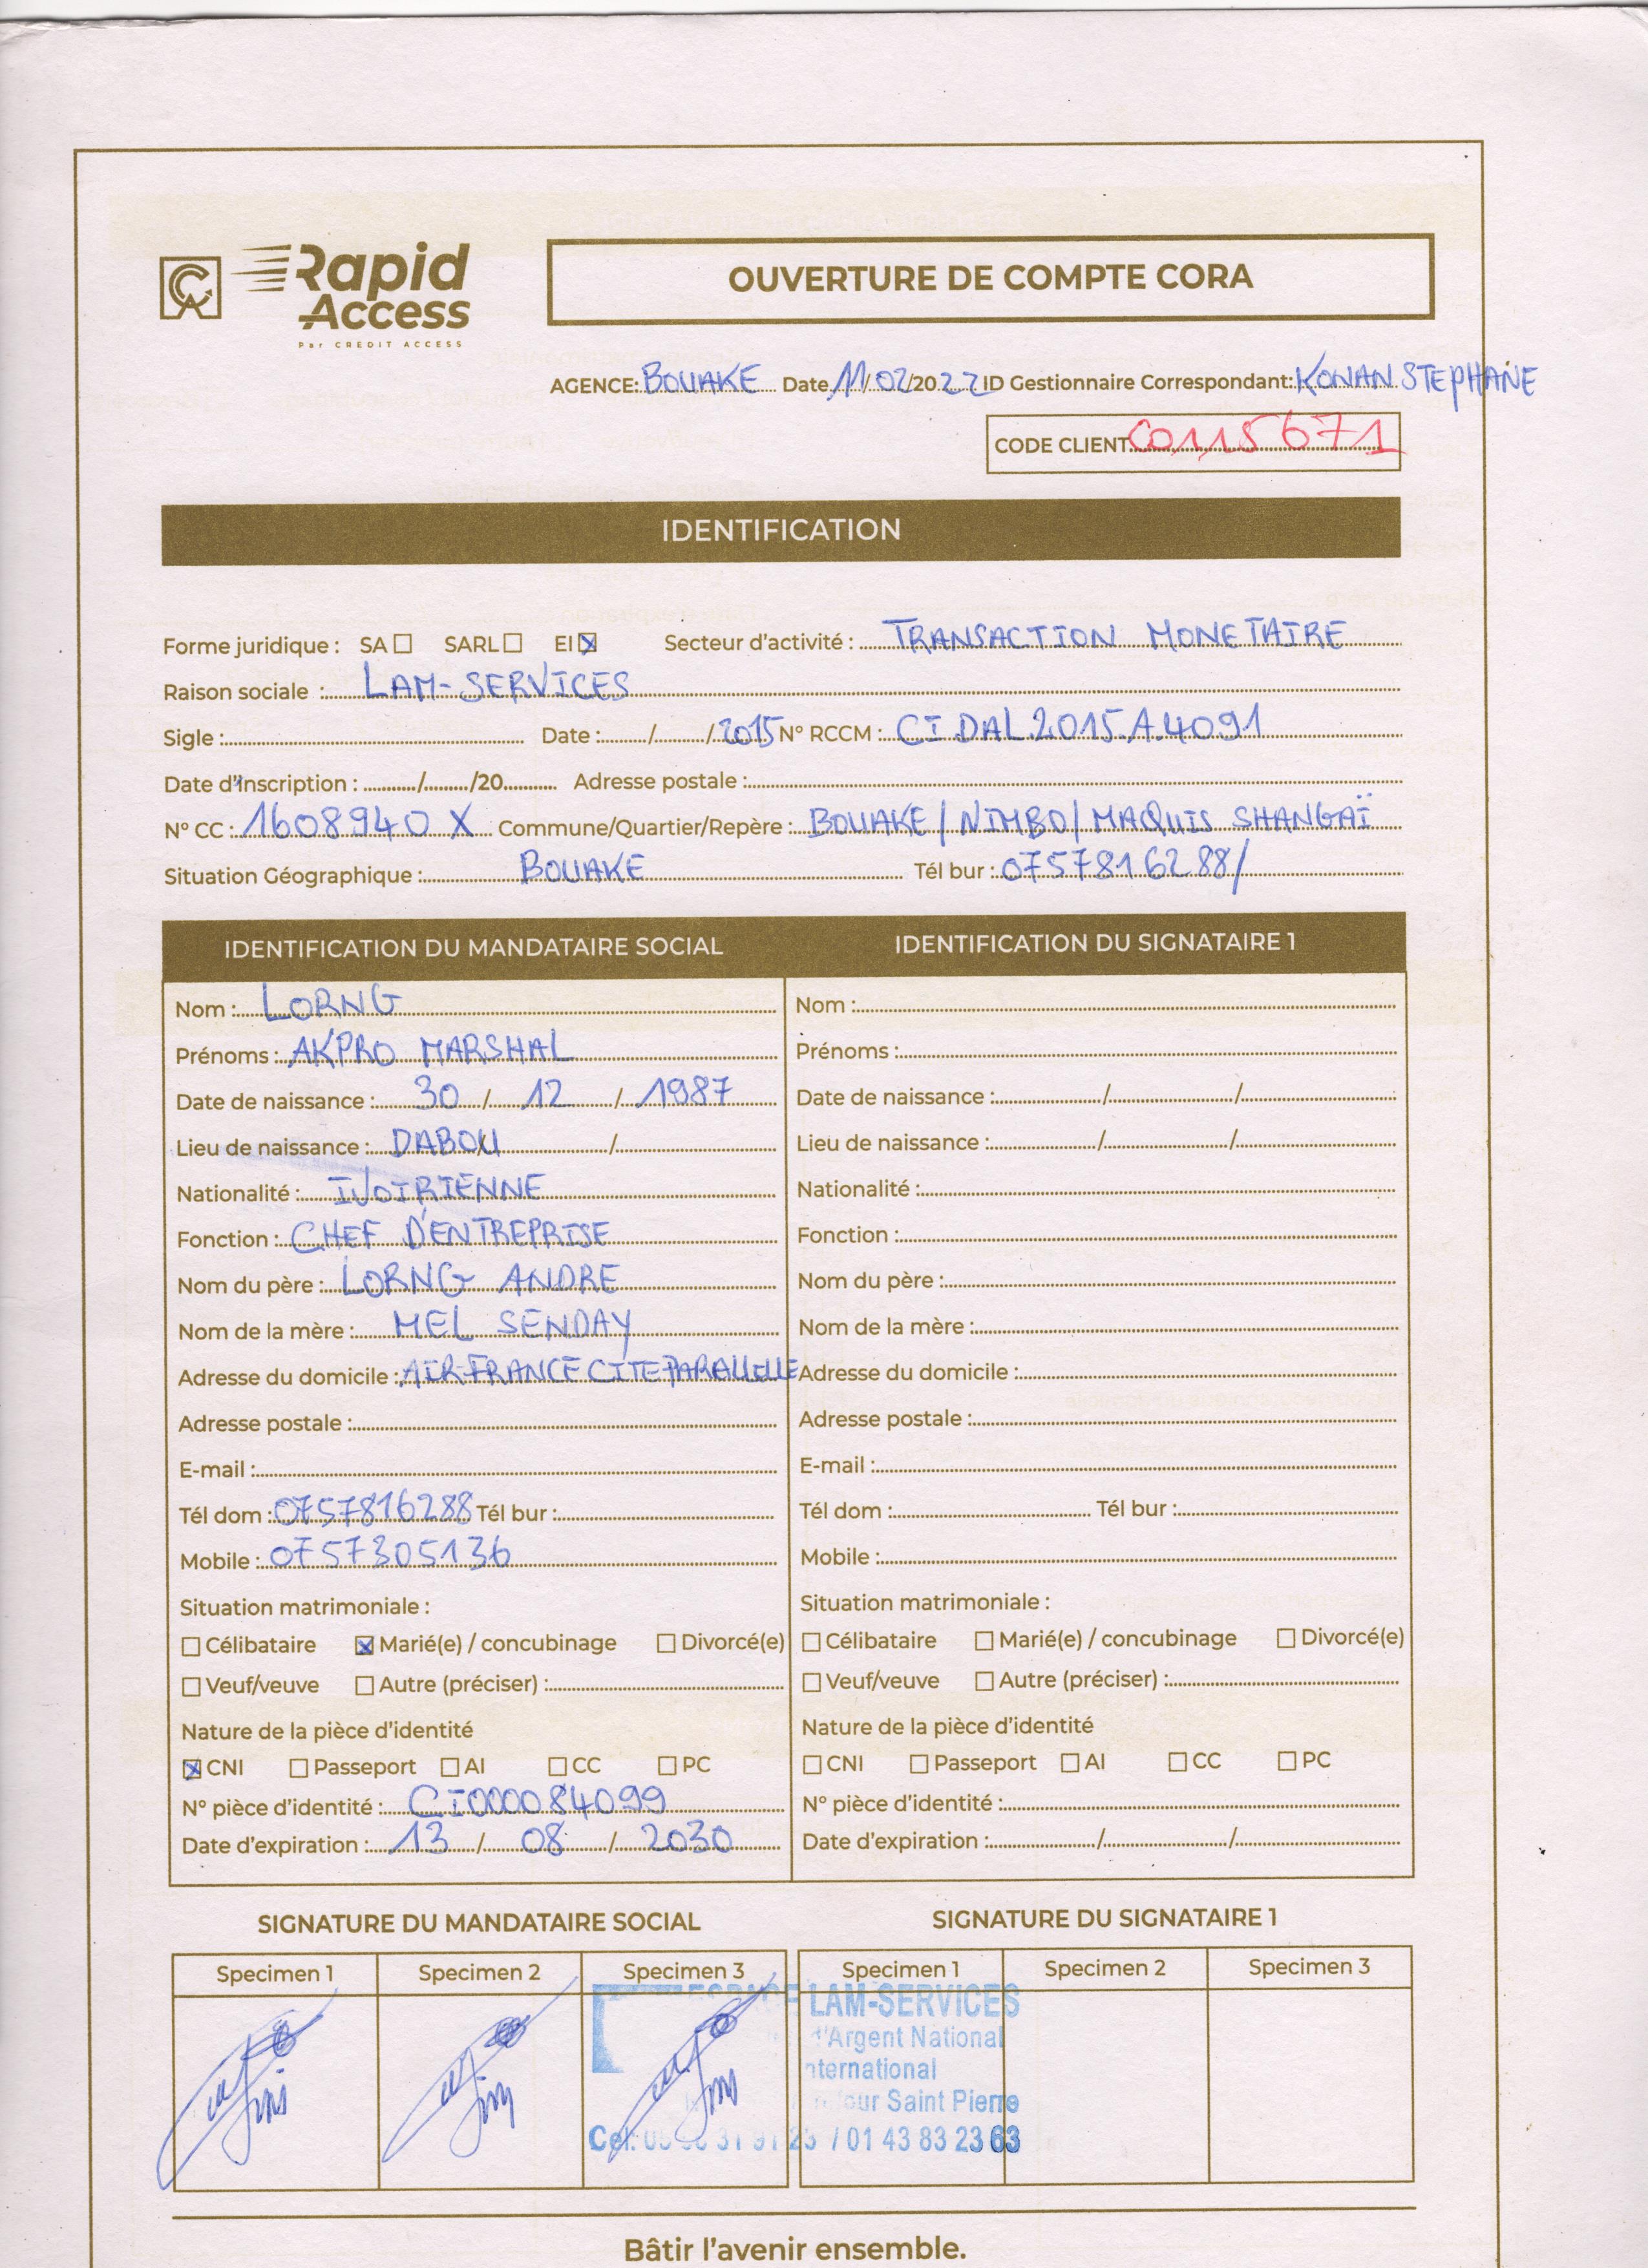 CA Rapid Access
Par CREDIT ACCESS
OUVERTURE DE COMPTE CORA
AGENCE: BOUAKE Date 11/02/2022 ID Gestionnaire Correspondant: KONAN STEPHANE
CODE CLIENT C0115671
IDENTIFICATION
Forme juridique : SA ☐ SARL ☐ EI ☒ Secteur d'activité : TRANSACTION MONETAIRE
Raison sociale : LAM-SERVICES
Sigle : Date : / /2015 N° RCCM : CI.DAL.2015.A.4091
Date d'inscription : / /20 Adresse postale :
N° CC : 1608940 X Commune/Quartier/Repère : BOUAKE/NIMBO/MAQUIS SHANGAÏ
Situation Géographique : BOUAKE Tél bur : 0757816288/
IDENTIFICATION DU MANDATAIRE SOCIAL
Nom : LORNG
Prénoms : AKPRO MARSHAL
Date de naissance : 30 / 12 / 1987
Lieu de naissance : DABOU /
Nationalité : IVOIRIENNE
Fonction : CHEF D'ENTREPRISE
Nom du père : LORNG ANDRE
Nom de la mère : MEL SENDAY
Adresse du domicile : AIR-FRANCE CITE PARALLELLE
Adresse postale :
E-mail :
Tél dom : 0757816288 Tél bur :
Mobile : 0757305136
Situation matrimoniale :
☐ Célibataire ☒ Marié(e) / concubinage ☐ Divorcé(e)
☐ Veuf/veuve ☐ Autre (préciser) :
Nature de la pièce d'identité
☒ CNI ☐ Passeport ☐ AI ☐ CC ☐ PC
N° pièce d'identité : CI000084099
Date d'expiration : 13 / 08 / 2030
IDENTIFICATION DU SIGNATAIRE 1
Nom :
Prénoms :
Date de naissance : / /
Lieu de naissance : / /
Nationalité :
Fonction :
Nom du père :
Nom de la mère :
Adresse du domicile :
Adresse postale :
E-mail :
Tél dom : Tél bur :
Mobile :
Situation matrimoniale :
☐ Célibataire ☐ Marié(e) / concubinage ☐ Divorcé(e)
☐ Veuf/veuve ☐ Autre (préciser) :
Nature de la pièce d'identité
☐ CNI ☐ Passeport ☐ AI ☐ CC ☐ PC
N° pièce d'identité :
Date d'expiration : / /
SIGNATURE DU MANDATAIRE SOCIAL
Specimen 1 Specimen 2 Specimen 3
SIGNATURE DU SIGNATAIRE 1
Specimen 1 Specimen 2 Specimen 3
LAM-SERVICES
d'Argent National
International
Saint Pierre
Cel: / 01 43 83 23 63
Bâtir l'avenir ensemble.